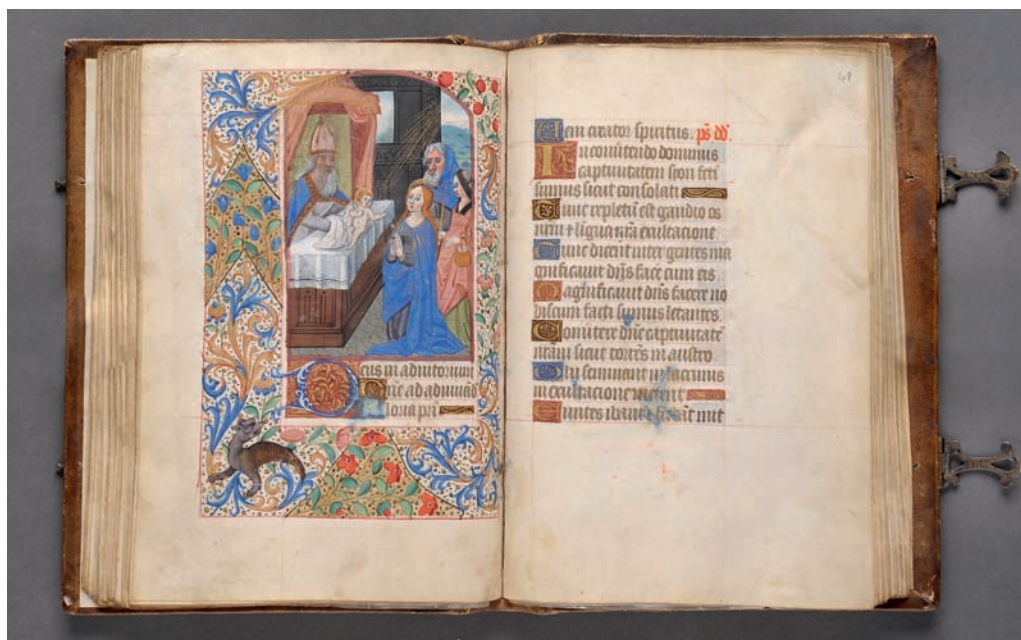 eus in adiutorium
ne ad adiuuād
loria pr̄i
41
Veni creator spiritus. p̄s dd̄.
In conūtendo dominus
captiuitatem syon facti
sumus sicut consolati
Tunc repletū est gaudio os
n̄rm & ligua n̄rā exultacione
Tunc dicent inter gentes ma
gnificauit dn̄s facē cum eis.
Magnificauit dn̄s facere no
biscum facti sumus letantes.
Conūtere dn̄e captiuitatē
n̄rām sicut torrēs in austro.
Qui seminant in lacrimis
in exultacione metent
Euntes ibant & flebāt mit